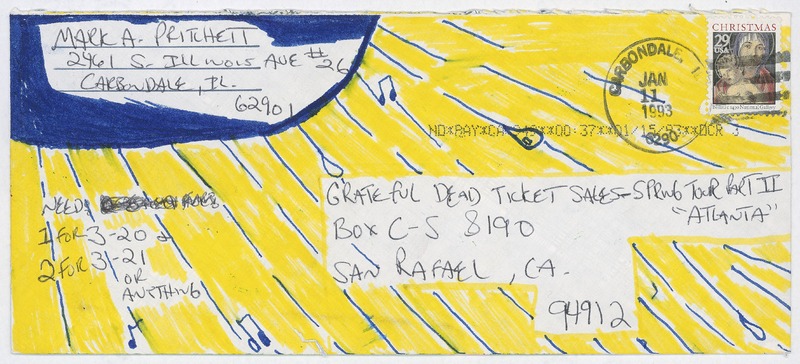 MARK A. PRITCHETT
2961 S. ILLINOIS AVE #26
CARBONDALE, IL.
62901
CHRISTMAS
29
USA
CARBONDALE, I
JAN
11
1993
6290
NO*BAY*CA 949**00:37**01/15/93**OCR 3
GRATEFUL DEAD TICKET SALES - SPRING TOUR PART II
"ATLANTA"
BOX C-S 8190
SAN RAFAEL, CA.
94912
NEED:
1 FOR 3-20 &
2 FOR 3-21
OR
ANYTHING